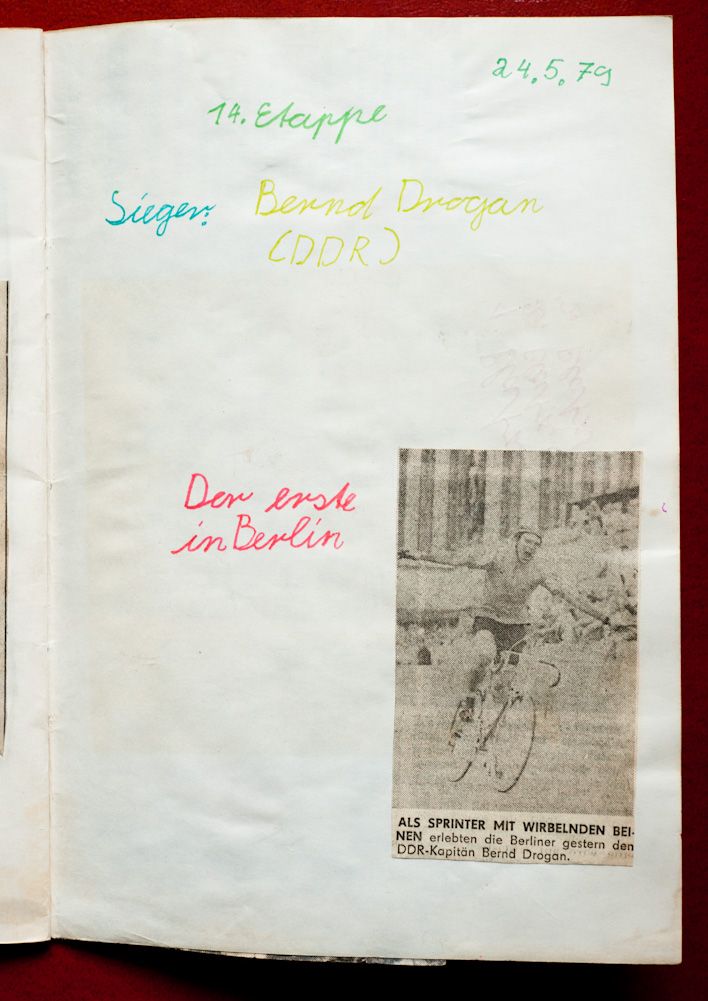 24.5.79
14. Etappe
Sieger: Bernd Drogan
(DDR)
Der erste
in Berlin
ALS SPRINTER MIT WIRBELNDEN BEI-
NEN erlebten die Berliner gestern den
DDR-Kapitän Bernd Drogan.